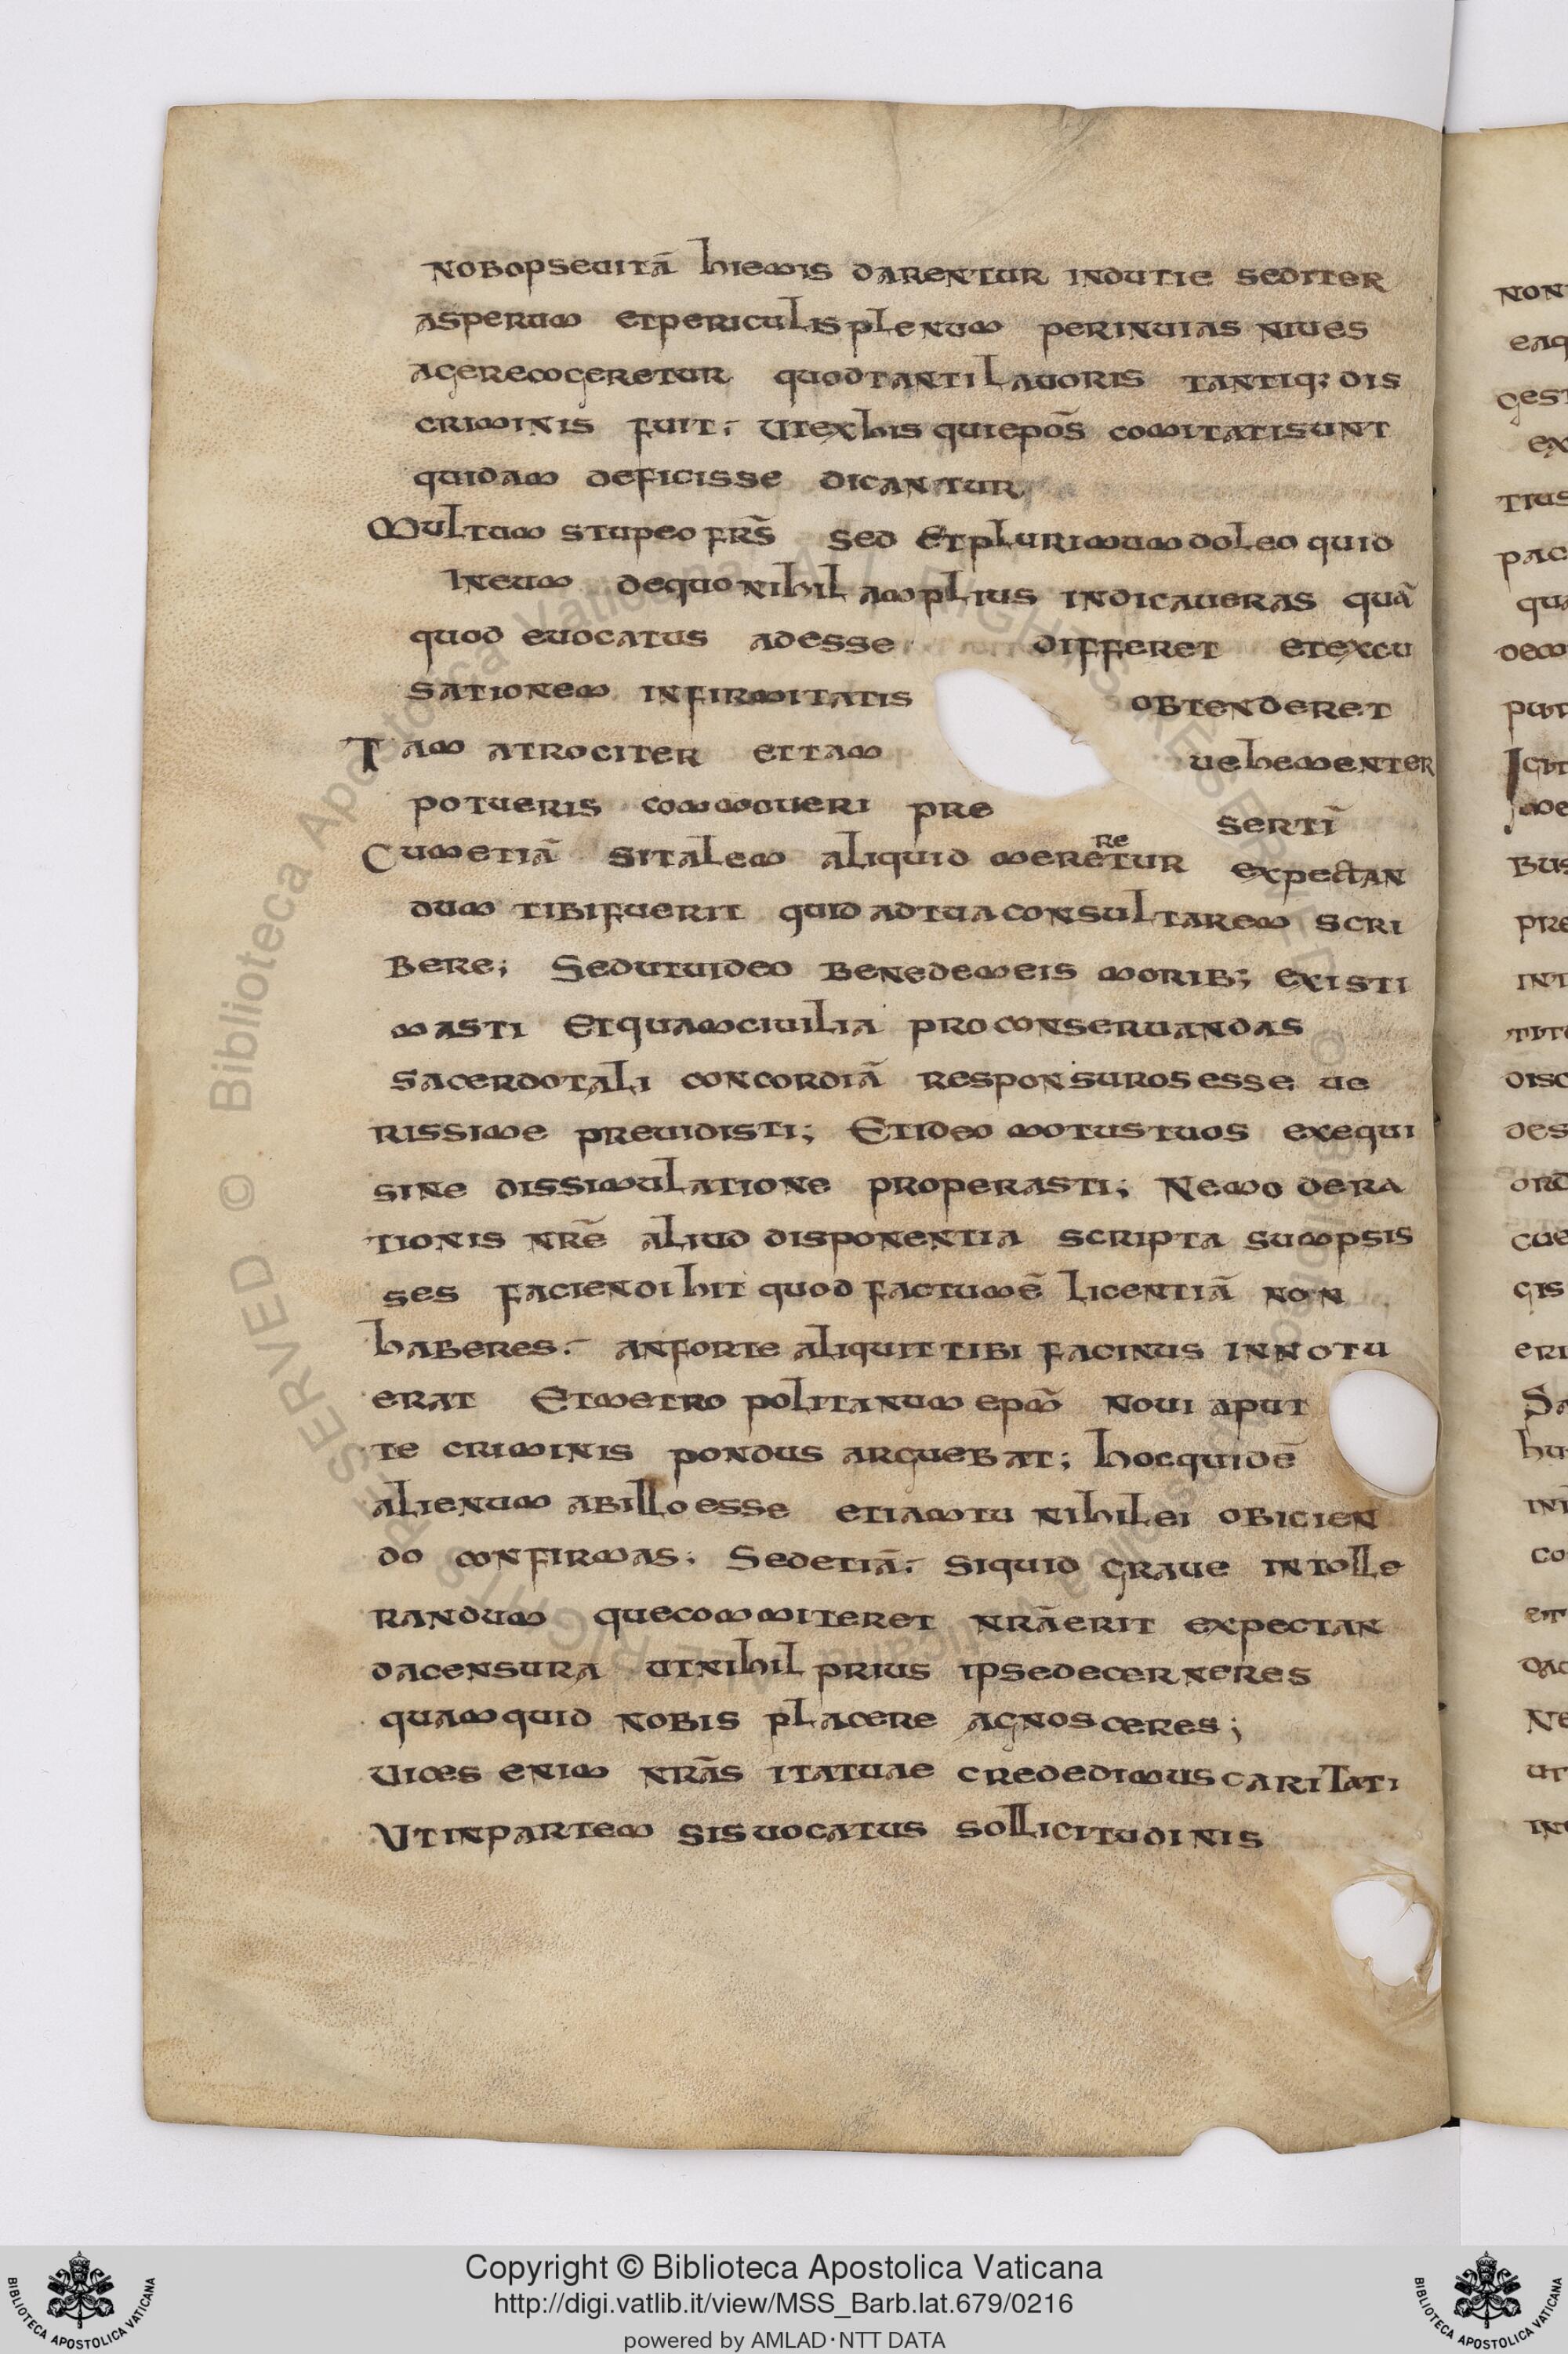 nobopseuitā hiemis darentur indutie sediter
asperum etpericulisplenum perinuias niues
agerecogeretur quodtantilauoris tantiq; dis
criminis fuit; Utexhis quiepōs comitatisunt
quidam deficisse dicantur
Multum stupeo frs̄ sed Etplurimumdoleo quid
Ineum dequonihil amplius indicaueras quā
quod euocatus adesse differet etexcu
sationem infirmitatis obtenderet
Tam atrociter ettam uehementer
potueris commoueri pre sertī
Cumetiā sitalem aliquid meretur re expectan
dum tibifuerit quid adtuaconsultarem scri
bere; Sedutuideo benedemeis morib; existi
masti Etquamciuilia proconseruandas
sacerdotali concordiā responsurosesse ue
rissime preuidisti; Etideo motustuos exequi
sine dissimulatione properasti; Nemo dera
tionis nrē aliud disponentia scripta sumpsis
ses faciendi hit quod factumē licentiā non
haberes. anforte aliquit tibi facinus innotu
erat Etmetropolitanum epm̄ noui aput
te criminis pondus arguebat; hocquidē
alienum abilloesse etiamtu nihilei obicien
do confirmas. Sedetiā. siquid graue intolle
randum quecommiteret nrāerit expectan
dacensura utnihil prius ipsedecerneres
quamquid nobis placere agnosceres;
Uices enim nrās itatuae crededimuscaritati
Utinpartem sisuocatus sollicitudinis
Copyright © Biblioteca Apostolica Vaticana
http://digi.vatlib.it/view/MSS_Barb.lat.679/0216
powered by AMLAD·NTT DATA
BIBLIOTECA APOSTOLICA VATICANA
BIBLIOTECA APOSTOLICA VATICANA